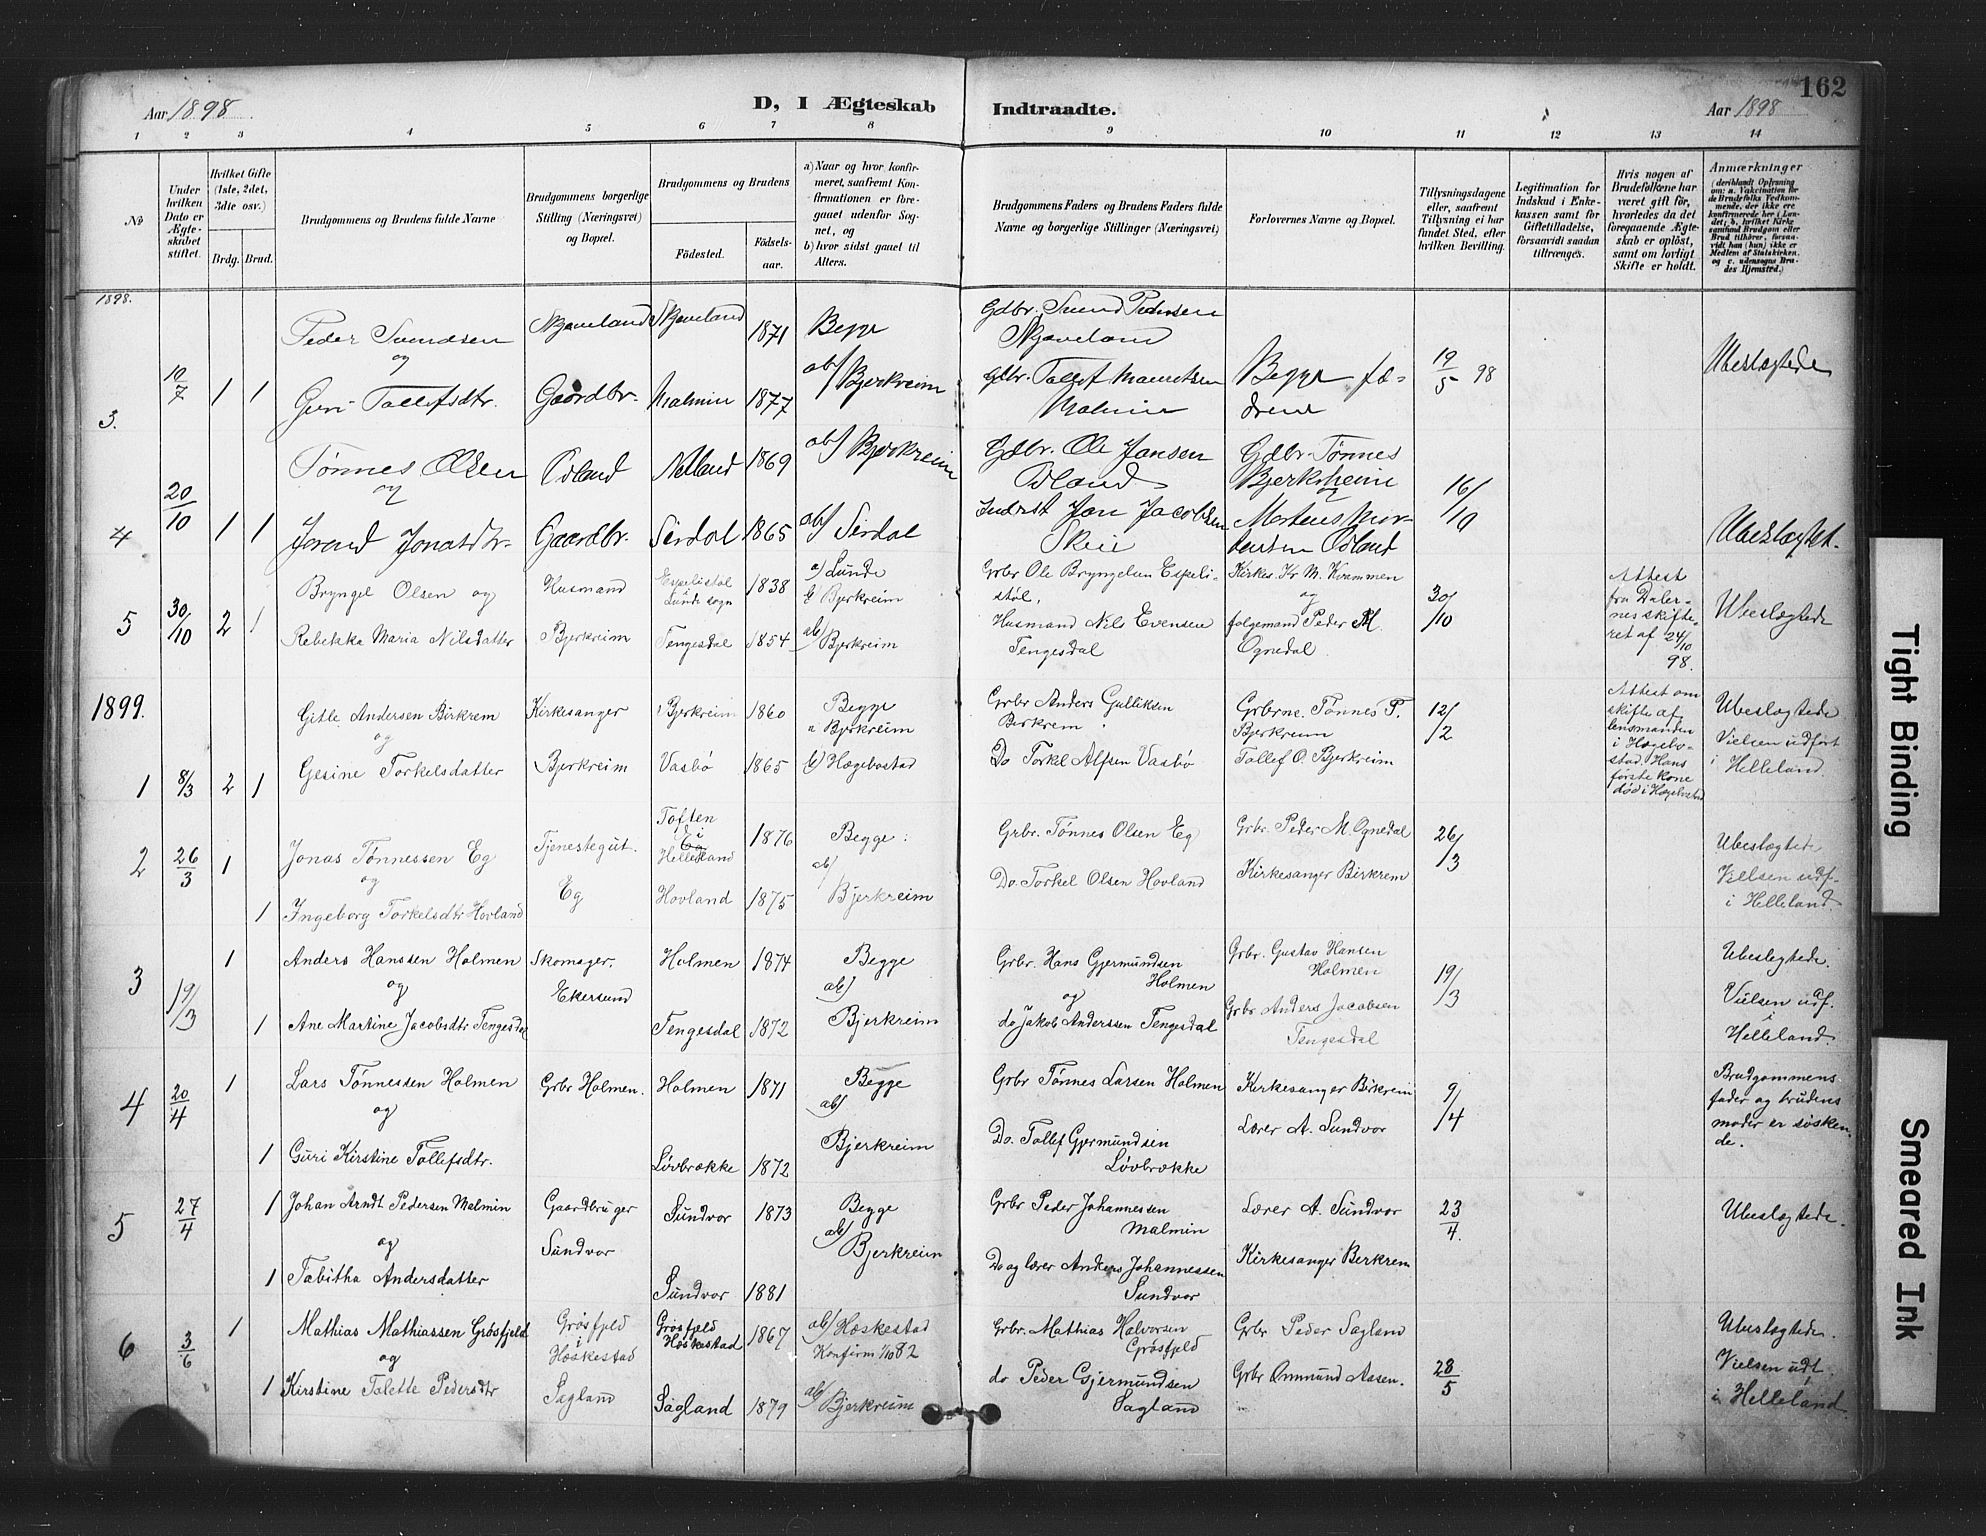 162
Aar 1898.
D, I Ægteskab Indtraadte.
Aar 1898
1 2 3 4 5 6 7 8 9 10 11 12 13 14
No
Under hvilken Dato er Ægteskabet stiftet.
Hvilket Gifte (1ste, 2det, 3die osv.)
Brdg. Brud.
Brudgommens og Brudens fulde Navne
Brudgommens borgerlige Stilling (Næringsvei) og Bopæl.
Brudgommens og Brudens
Fødested.
Fødselsaar.
a) Naar og hvor konfirmeret, saafremt Konfirmationen er foregaaet udenfor Sognet, og
b) hvor sidst gaaet til Alters.
Brudgommens Faders og Brudens Faders fulde Navne og borgerlige Stillinger (Næringsvei)
Forlovernes Navne og Bopæl.
Tillysningsdagene eller, saafremt Tillysning ei har fundet Sted, efter hvilken Bevilling.
Legitimation for Indskud i Enkekassen samt for Giftetilladelse, forsaavidt saadan tiltrænges.
Hvis nogen af Brudefolkene har været gift før, hvorledes da det foregaaende Ægteskab er opløst, samt om lovligt Skifte er holdt.
Anmærkninger
(deriblandt Oplysning om: a. Vakcination for de Brudefolks Vedkommende, der ikke ere konfirmerede her i Landet; b. hvilket Kirkesamfund Brudgom eller Brud tilhører, forsaavidt han (hun) ikke er Medlem af Statskirken, og c. udensogns Brudes Hjemsted.)
1898.
3. 10/7 1 1
Peder Svendsen
og
Guri Tollefsdtr.
Skjæveland Gaardbr.
Skjæveland 1871
Malmin 1877
Begge
ab) Bjerkreim
Gdbr. Svend Pedersen
Skjæveland
Gdbr. Tollef Mauritsen
Malmin
Begge fæ-
drene
19/5 98
Ubeslægtede
4 20/10 1 1
Tønnes Olsen
og
Jorend Jonasdtr.
Odland Gaardbr.
Netland 1869
Sirdal 1865
ab) Bjerkreim
ab) Sirdal
Gdbr. Ole Jansen
Odland
Inderst Jon Jacobsen
Skeie
Gdbr. Tønnes
Bjerkreim
og
Mortens Mor-
tensen Odland
16/10
Ubeslægtet.
5 30/10 2 1
Bryngel Olsen og
Rebekka Maria Nilsdatter
Husmand
Bjerkreim
Espelistøl
i
Lunde sogn 1838
Tengesdal 1854
a) Lunde
b Bjerkreim
ab)
Bjerkreim
Grbr Ole Bryngelsen Espeli-
støl.
Husmand Nils Evensen
Tengesdal
Kirkes. Kr M. Kvammen
og
følgemand Peder M.
Ognedal.
30/10
Attest
fra Daler-
nes skifte-
ret af 24/10
98.
Ubeslægtede
1899.
1 8/3 2 1
Gitle Andersen Birkrem
og
Gesine Torkelsdatter
Kirkesanger
Bjerkreim
Bjerkreim 1860
Vasbø 1865
Begge
a Bjerkreim
b) Hægebostad
Grbr Anders Gulliksen
Berkrem
Do Torkel Alfsen Vasbø
Grberne. Tønnes P.
Bjerkreim
Tollef O. Bjerkreim
12/2
Attest om
skifte af
lensmanden
i Hægebo-
stad. Hans
første kone
død i Hægebostad
Ubeslægtede
Vielsen udført
i Helleland.
2 26/3 1
Jonas Tønnessen Eg
og
1 Ingeborg Torkelsdtr Hovland
Tjenestegut.
Eg
Toften
i
Eg
Helleland 1876
Hovland 1875
Begge:
ab)
Bjerkreim
Grbr. Tønnes Olsen Eg
Do. Torkel Olsen Hovland
Grbr. Peder M. Ognedal
Kirkesanger Birkrem
26/3
Ubeslægtede
Vielsen udf.
i Helleland.
3 19/3 1
Anders Hanssen Holmen
og
1 Ane Martine Jacobsdtr Tengesdal
Skomager.
Ekersund
Holmen 1874
Tengesdal 1872
Begge
ab)
Bjerkreim
Grbr. Hans Gjermundsen
Holmen
og
do Jakob Anderssen Tengesdal
Grbr. Gustav Hansen
Holmen
Grbr Anders Jacobsen
Tengesdal
19/3
Ubeslægtede.
Vielsen udf.
i
Helleland.
4 20/4 1
Lars Tønnessen Holmen
og
1 Guri Kirstine Tollefsdtr.
Grbr Holmen.
Holmen 1871
Løvbrække 1872
Begge
ab)
Bjerkreim
Grbr Tønnes Larsen Holmen
Do. Tollef Gjermundsen
Løvbrække
Kirkesanger Birkreim
Lærer A. Sundvor
9/4
Brudgommens
fader og brudens
moder er søsken-
de.
5 27/4 1
Johan Arndt Pedersen Malmin
og
1 Tabitha Andersdatter
Gaardbruger
Sundvor
Sundvor 1873
Sundvor 1881
Begge
ab)
Bjerkreim
Grbr Peder Johannessen
Malmin
Do og lærer Anders Johannessen
Sundvor
Lærer A. Sundvor
Kirkesanger Berkrem
23/4.
Ubeslægtede.
6 3/6 1
Mathias Mathiassen Grøsfjeld
og
1 Kirstine Talette Pedersdtr
Grøsfjeld
i
Høskestad
Sagland
Grøsfjeld
Høskestad 1867
Sagland 1879
ab) Høskestad
Konfirm 1/10 82
ab) Bjerkreim
Grbr. Mathias Halvorsen
Grøsfjeld
do Peder Gjermundsen
Sagland
Grbr Peder Sagland
Grbr Ommund Aasen.
28/5
Ubeslægtede.
Vielsen udf.
i Helleland.
Tight Binding
Smeared Ink